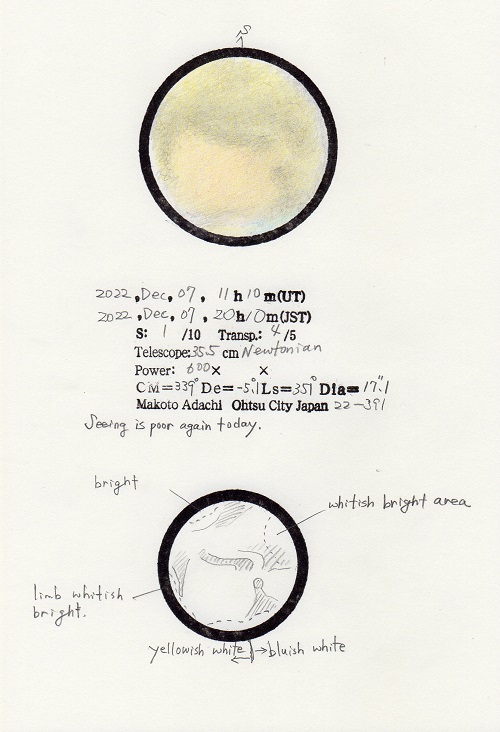 S
2022, Dec, 07, 11h10m(UT)
2022, Dec, 07, 20h10m(JST)
S: 1 /10 Transp.: 4/5
Telescope: 35.5 cm Newtonian
Power: 600× ×
CM=339° De=-5.°1 Ls=351° Dia=17."1
Makoto Adachi Ohtsu City Japan 22-391
Seeing is poor again today.
bright
whitish bright area
limb whitish
bright.
yellowish white ← → bluish white